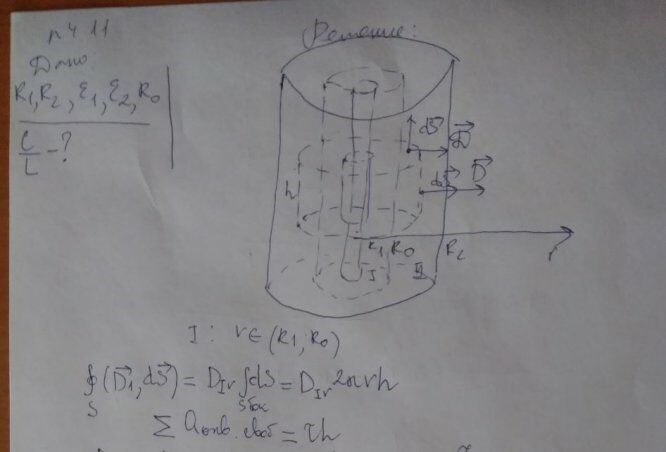 п 4.11
Решение:
Дано:
R₁, R₂, ε₁, ε₂, R₀
C/L - ?
dS⃗
D⃗
dS⃗
D⃗
h
R₁ R₀ R₂
r
I II
I : r ∈ (R₁; R₀)
∮ₛ (D⃗₁, dS⃗) = D_Ir ∫_Sбок dS = D_Ir 2πrh
∑ Qохв. своб = τh